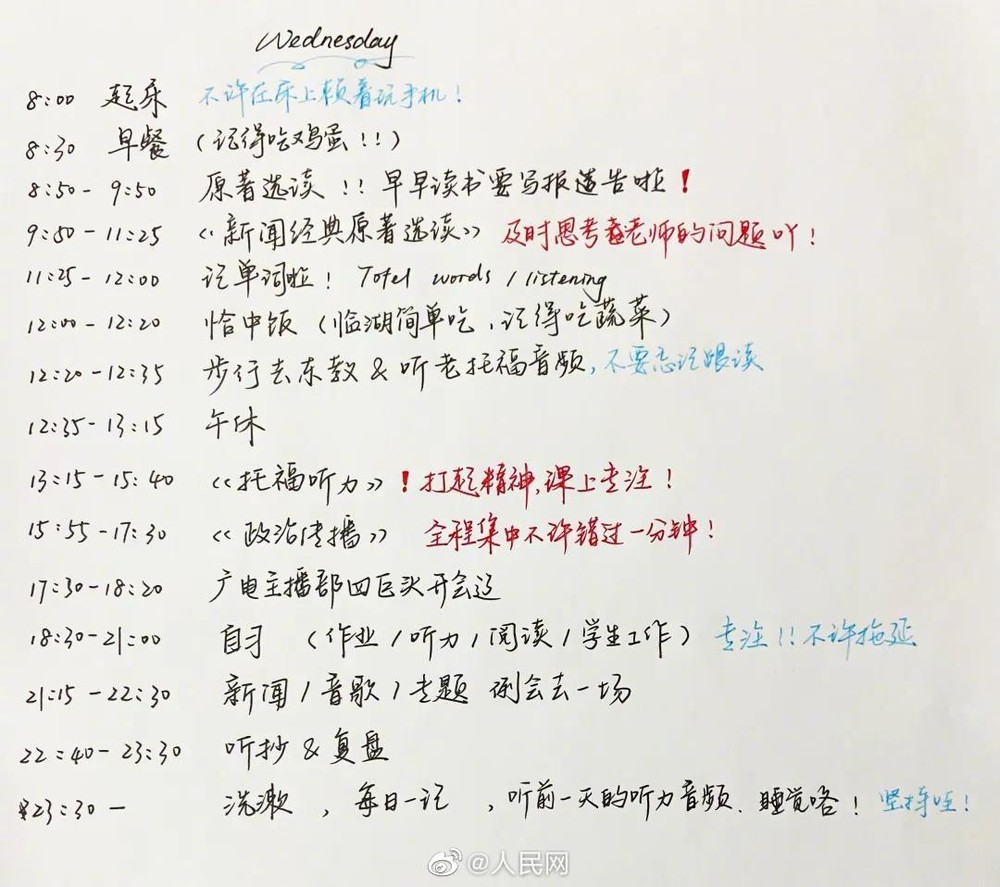 Wednesday
8:00 起床 不许在床上赖着玩手机!
8:30 早餐 (记得吃鸡蛋!!)
8:50-9:50 原著选读!! 早早读书要写报告啦!
9:50-11:25 《新闻经典原著选读》 及时思考老师的问题吖!
11:25-12:00 记单词啦! Tofel words / listening
12:00-12:20 恰中饭 (临湖简单吃,记得吃蔬菜)
12:20-12:35 步行去东教 & 听老托福音频,不要忘记跟读
12:35-13:15 午休
13:15-15:40 《托福听力》!打起精神,课上专注!
15:55-17:30 《政治传播》 全程集中不许错过一分钟!
17:30-18:20 广电主播部四巨头开会辽
18:30-21:00 自习 (作业/听力/阅读/学生工作) 专注!!不许拖延
21:15-22:30 新闻/音歌/专题 例会去一场
22:40-23:30 听抄 & 复盘
23:30- 洗漱,每日一记,听前一天的听力音频、睡觉咯! 坚持哇!
@人民网